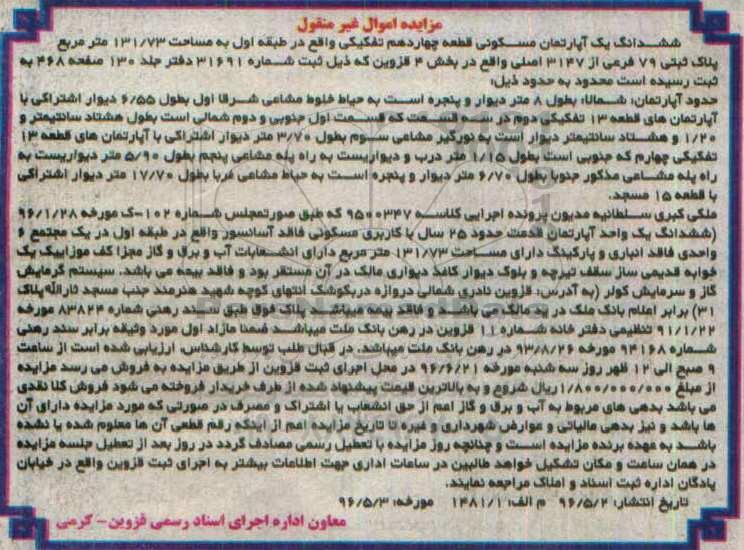 مزایده اموال غیر منقول
ششدانگ یک آپارتمان مسکونی قطعه چهاردهم تفکیکی واقع در طبقه اول به مساحت ۱۳۱/۷۳ متر مربع
پلاک ثبتی ۷۹ فرعی از ۳۱۴۷ اصلی واقع در بخش ۴ قزوین که ذیل ثبت شماره ۳۱۶۹۱ دفتر جلد ۱۳۰ صفحه ۴۶۸ به
ثبت رسیده است محدود به حدود ذیل:
حدود آپارتمان: شمالا: بطول ۸ متر دیوار و پنجره است به حیاط خلوط مشاعی شرقا اول بطول ۶/۵۵ دیوار اشتراکی با
آپارتمان های قطعه ۱۳ تفکیکی دوم در سه قسمت که قسمت اول جنوبی و دوم شمالی است بطول هشتاد سانتیمتر و
۱/۲۰ و هشتاد سانتیمتر دیوار است به نورگیر مشاعی سوم بطول ۳/۷۰ متر دیوار اشتراکی با آپارتمان های قطعه ۱۳
تفکیکی چهارم که جنوبی است بطول ۱/۱۵ متر درب و دیواریست به راه پله مشاعی پنجم بطول ۵/۹۰ متر دیواریست به
راه پله مشاعی مذکور جنوبا بطول ۶/۷۰ متر دیوار و پنجره است به حیاط مشاعی غربا بطول ۱۷/۷۰ متر دیوار اشتراکی
با قطعه ۱۵ مسجد.
ملکی کبری سلطانیه مدیون پرونده اجرایی کلاسه ۹۵۰۰۳۴۷ که طبق صورتمجلس شماره ۱۰۲-ک مورخه ۹۶/۱/۲۸
(ششدانگ یک واحد آپارتمان قدمت حدود ۲۵ سال با کاربری مسکونی فاقد آسانسور واقع در طبقه اول در یک مجتمع ۶
واحدی فاقد انباری و پارکینگ دارای مساحت ۱۳۱/۷۳ متر مربع دارای انشعابات آب و برق و گاز مجزا کف موزاییک یک
خوابه قدیمی ساز سقف تیرچه و بلوک دیوار کاغذ دیواری مالک در آن مستقر بود و فاقد بیمه می باشد. سیستم گرمایش
گاز و سرمایش کولر (به آدرس: قزوین نادری شمالی دروازه دربکوشک انتهای کوچه شهید هنرمند جنب مسجد ثارالله پلاک
۳۱) برابر اعلام بانک ملک در ید مالک می باشد و فاقد بیمه میباشد پلاک فوق طبق سند رهنی شماره ۸۳۸۲۴ مورخه
۹۱/۱/۲۲ تنظیمی دفتر خانه شماره ۱۱ قزوین در رهن بانک ملت میباشد ضمنا مازاد اول مورد وثیقه برابر سند رهنی
شماره ۹۴۱۶۸ مورخه ۹۳/۸/۲۶ در رهن بانک ملت میباشد. در قبال طلب توسط کارشناس، ارزیابی شده است از ساعت
۹ صبح الی ۱۲ ظهر روز سه شنبه مورخه ۹۶/۶/۲۱ در محل اجرای ثبت قزوین از طریق مزایده به فروش می رسد مزایده
از مبلغ ۱/۸۰۰/۰۰۰/۰۰۰ ریال شروع و به بالاترین قیمت پیشنهاد شده از طرف خریدار فروخته می شود فروش کلا نقدی
می باشد بدهی های مربوط به آب و برق و گاز اعم از حق انشعاب یا اشتراک و مصرف در صورتی که مورد مزایده دارای آن
ها باشد و نیز بدهی مالیاتی و عوارض شهرداری و غیره تا تاریخ مزایده اعم از اینکه رقم قطعی آن ها معلوم شده یا نشده
باشد به عهده برنده مزایده است و چنانچه روز مزایده با تعطیل رسمی مصادف گردد در روز بعد از تعطیل جلسه مزایده
در همان ساعت و مکان تشکیل خواهد طالبین در ساعات اداری جهت اطلاعات بیشتر به اجرای ثبت قزوین واقع در خیابان
پادگان اداره ثبت اسناد و املاک مراجعه نمایند.
تاریخ انتشار: ۹۶/۵/۲ م الف: ۱۴۸۱/۱ مورخه: ۹۶/۵/۳
معاون اداره اجرای اسناد رسمی قزوین- کرمی